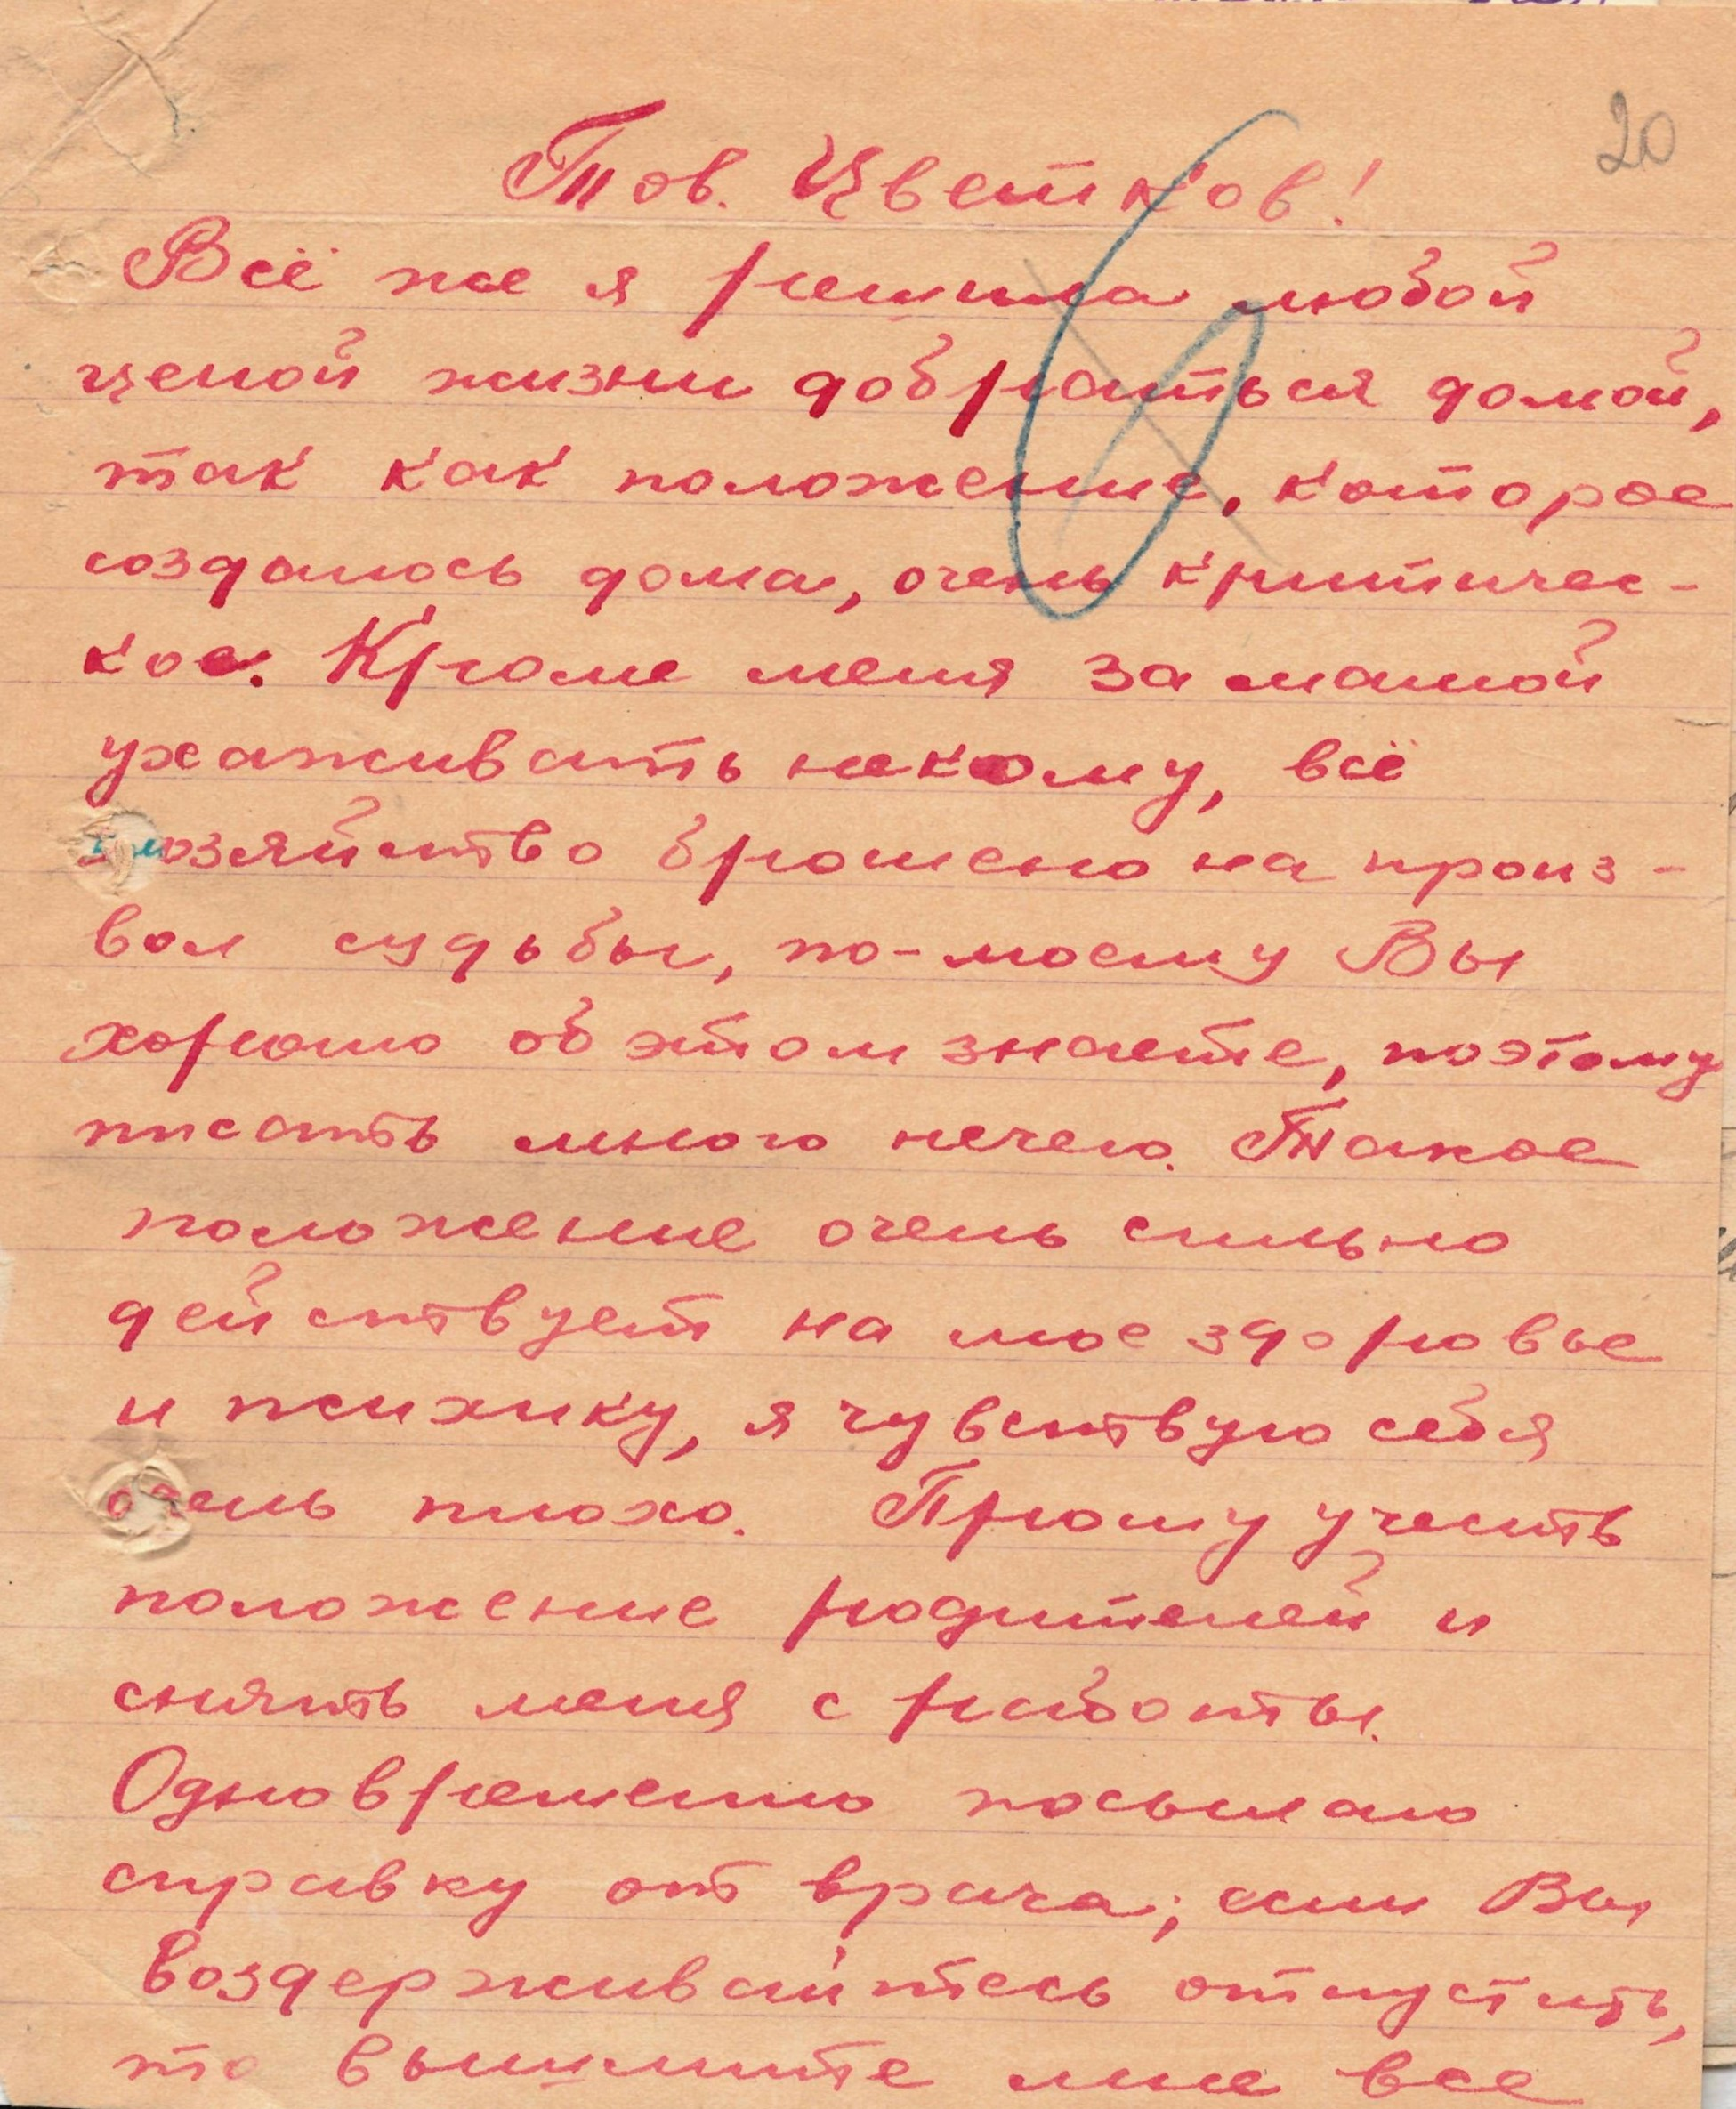 20
Тов. Цветков!
Всё же я решила любой
ценой жизни добраться домой,
так как положение, которое
создалось дома, очень критичес-
кое. Кроме меня за мамой
ухаживать некому, всё
хозяйство брошено на произ-
вол судьбы, по-моему Вы
хорошо об этом знаете, поэтому
писать много нечего. Такое
положение очень сильно
действует на мое здоровье
и психику, я чувствую себя
очень плохо. Прошу учесть
положение родителей и
снять меня с работы.
Одновременно посылаю
справку от врача; если Вы
воздерживайтесь отпустить,
то вышлите мне все